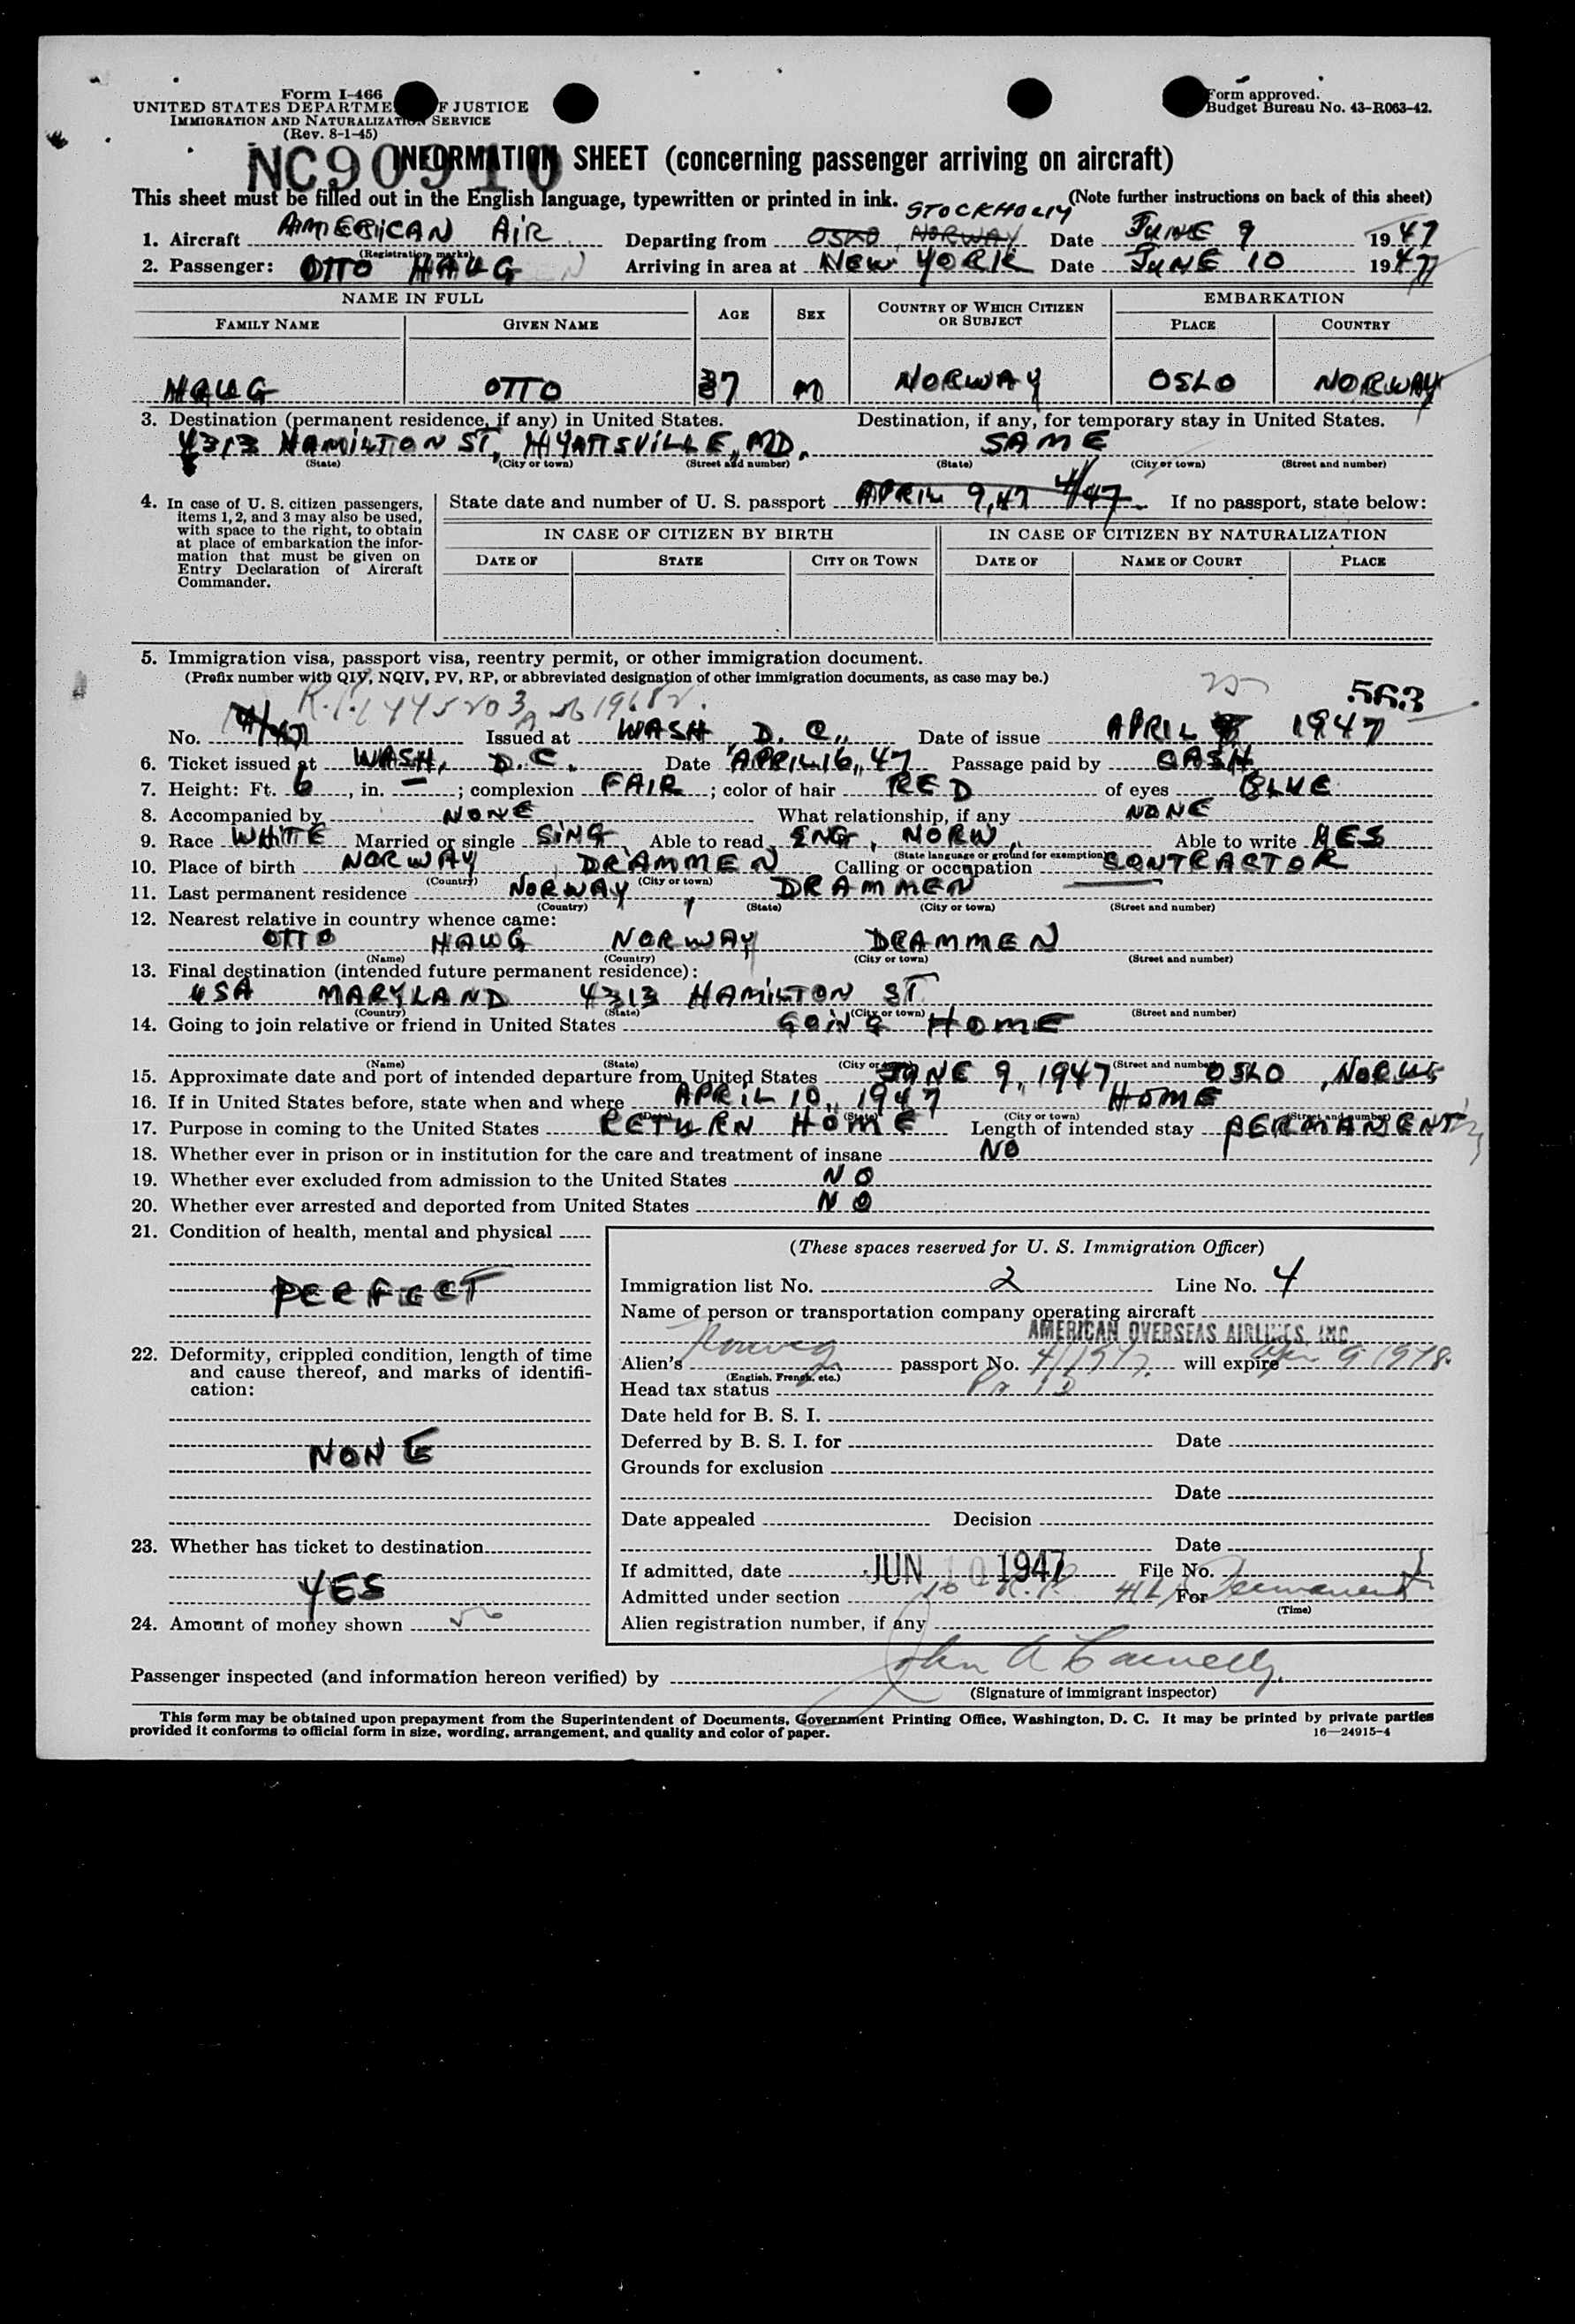 Form I-466
UNITED STATES DEPARTMENT OF JUSTICE
IMMIGRATION AND NATURALIZATION SERVICE
(Rev. 8-1-45)
Form approved.
Budget Bureau No. 43-R063-42.
NC90910
INFORMATION SHEET (concerning passenger arriving on aircraft)
This sheet must be filled out in the English language, typewritten or printed in ink. (Note further instructions on back of this sheet)
STOCKHOLM
1. Aircraft AMERICAN AIR Departing from OSLO, NORWAY Date JUNE 9 1947
(Registration marks)
2. Passenger: OTTO HAUG Arriving in area at NEW YORK Date JUNE 10 1947
NAME IN FULL AGE SEX COUNTRY OF WHICH CITIZEN OR SUBJECT EMBARKATION
FAMILY NAME GIVEN NAME PLACE COUNTRY
HAUG OTTO 37 M NORWAY OSLO NORWAY
3. Destination (permanent residence, if any) in United States. Destination, if any, for temporary stay in United States.
4313 HAMILTON ST, HYATTSVILLE, MD. SAME
(State) (City or town) (Street and number) (State) (City or town) (Street and number)
4. In case of U. S. citizen passengers, items 1, 2, and 3 may also be used, with space to the right, to obtain at place of embarkation the information that must be given on Entry Declaration of Aircraft Commander.
State date and number of U. S. passport APRIL 9, 47 4/47. If no passport, state below:
IN CASE OF CITIZEN BY BIRTH IN CASE OF CITIZEN BY NATURALIZATION
DATE OF STATE CITY OR TOWN DATE OF NAME OF COURT PLACE
5. Immigration visa, passport visa, reentry permit, or other immigration document.
(Prefix number with QIV, NQIV, PV, RP, or abbreviated designation of other immigration documents, as case may be.)
563
No. Issued at WASH D. C., Date of issue APRIL 1947
6. Ticket issued at WASH, D.C. Date APRIL 16, 47 Passage paid by CASH
7. Height: Ft. 6, in. –; complexion FAIR; color of hair RED of eyes BLUE
8. Accompanied by NONE What relationship, if any NONE
9. Race WHITE Married or single SING Able to read ENG, NORW, Able to write YES
(State language or ground for exemption)
10. Place of birth NORWAY, DRAMMEN Calling or occupation CONTRACTOR
(Country) (City or town)
11. Last permanent residence NORWAY, DRAMMEN
(Country) (State) (City or town) (Street and number)
12. Nearest relative in country whence came:
OTTO HAUG NORWAY DRAMMEN
(Name) (Country) (City or town) (Street and number)
13. Final destination (intended future permanent residence):
USA MARYLAND 4313 HAMILTON ST
(Country) (State) (City or town) (Street and number)
14. Going to join relative or friend in United States GOING HOME
(Name) (State) (City or town) (Street and number)
15. Approximate date and port of intended departure from United States JUNE 9, 1947 OSLO,
16. If in United States before, state when and where APRIL 10, 1947 HOME
(Date) (State) (City or town) (Street and number)
17. Purpose in coming to the United States RETURN HOME Length of intended stay PERMANENT
18. Whether ever in prison or in institution for the care and treatment of insane NO
19. Whether ever excluded from admission to the United States NO
20. Whether ever arrested and deported from United States NO
21. Condition of health, mental and physical
PERFECT
22. Deformity, crippled condition, length of time and cause thereof, and marks of identification:
NONE
23. Whether has ticket to destination
YES
24. Amount of money shown 50
(These spaces reserved for U. S. Immigration Officer)
Immigration list No. 2 Line No. 4
Name of person or transportation company operating aircraft
AMERICAN OVERSEAS AIRLINES, INC.
Alien's passport No. will expire
(English, French, etc.)
Head tax status
Date held for B. S. I.
Deferred by B. S. I. for Date
Grounds for exclusion
Date
Date appealed Decision
Date
If admitted, date JUN 10 1947 File No.
Admitted under section For Permanent
(Time)
Alien registration number, if any
Passenger inspected (and information hereon verified) by John A
(Signature of immigrant inspector)
This form may be obtained upon prepayment from the Superintendent of Documents, Government Printing Office, Washington, D. C. It may be printed by private parties
provided it conforms to official form in size, wording, arrangement, and quality and color of paper. 16—24915-4